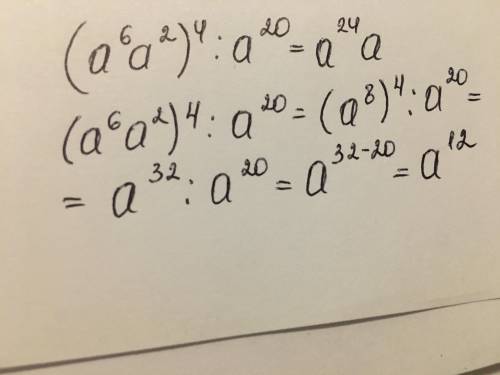 (a⁶a²)⁴ : a²⁰ = a²⁴a
(a⁶a²)⁴ : a²⁰ = (a⁸)⁴ : a²⁰ =
= a³² : a²⁰ = a³²⁻²⁰ = a¹²